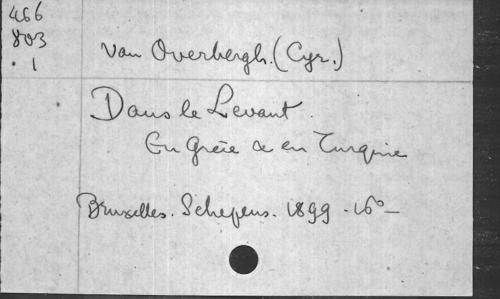 466
803
. 1
Van Overbergh. (Cyr.)
Dans le Levant.
En Grèce & en Turquie
Bruxelles. Schepens. 1899 - 16° -